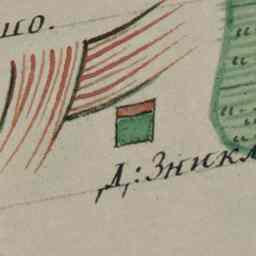 цо.
Д: Зникл